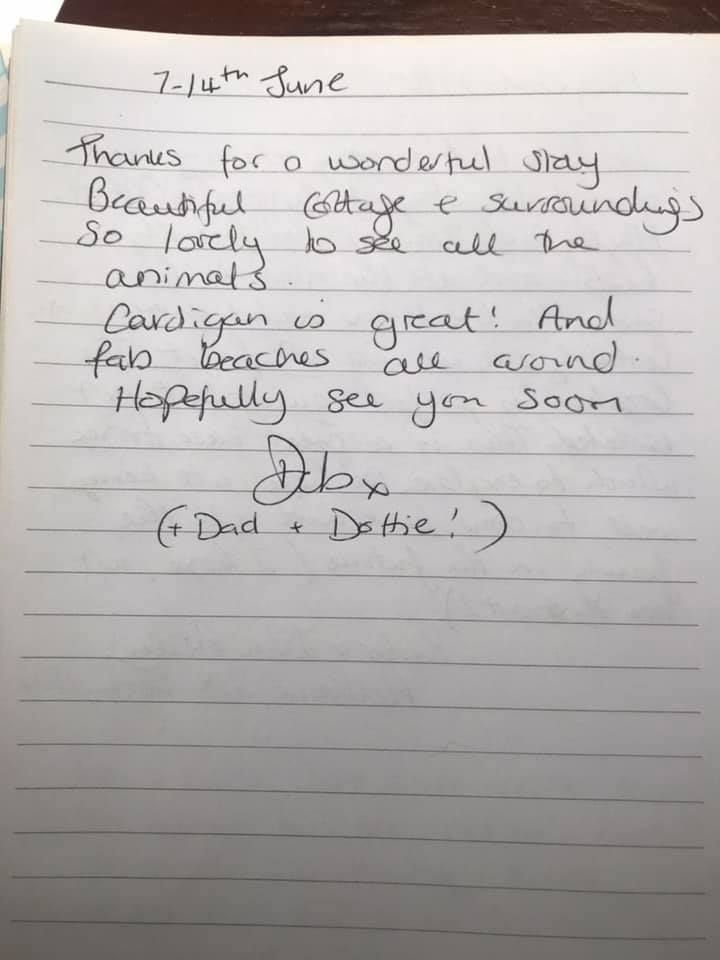 7-14th June
Thanks for a wonderful stay
Beautiful Cottage & surroundings
So lovely to see all the
animals.
Cardigan is great! And
fab beaches all around.
Hopefully see you soon
Deb x
(+ Dad + Dottie!)